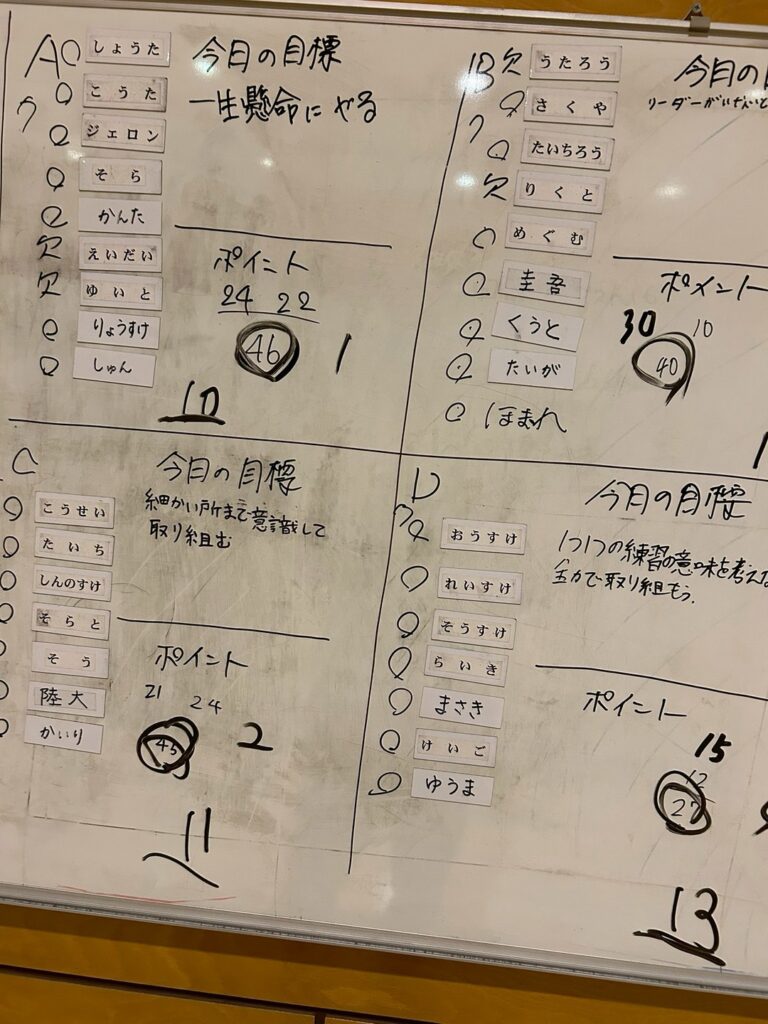 A
しょうた
こうた
ジェロン
そら
かんた
欠 えいだい
欠 ゆいと
りょうすけ
しゅん
今日の目標
一生懸命にやる
ポイント
24 22
46
1
10
B
欠 うたろう
さくや
たいちろう
欠 りくと
めぐむ
圭吾
くうと
たいが
ほまれ
今日の
ポイント
30 10
40
1
C
こうせい
たいち
しんのすけ
そらと
そう
陸大
かいり
今日の目標
細かい所まで意識して
取り組む
ポイント
21 24
45
2
11
D
おうすけ
れいすけ
そうすけ
らいき
まさき
けいご
ゆうま
今日の目標
1つ1つの練習の意味を考え
全力で取り組もう。
ポイント
15
12
27
13